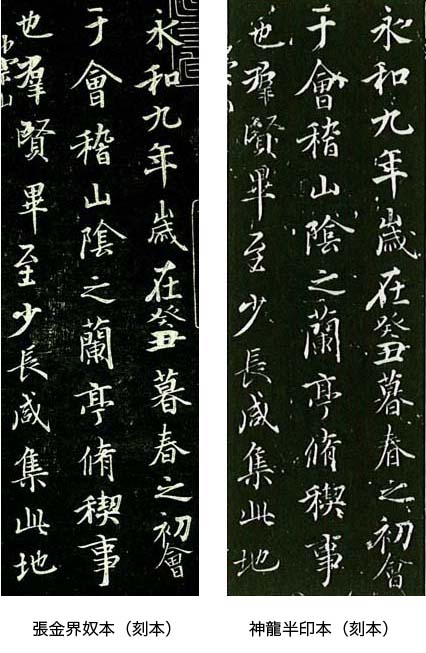 永和九年歳在癸丑暮春之初會
于會稽山陰之蘭亭脩稧事
也羣賢畢至少長咸集此地
張金界奴本（刻本）
永和九年歳在癸丑暮春之初會
于會稽山陰之蘭亭脩稧事
也羣賢畢至少長咸集此地
神龍半印本（刻本）